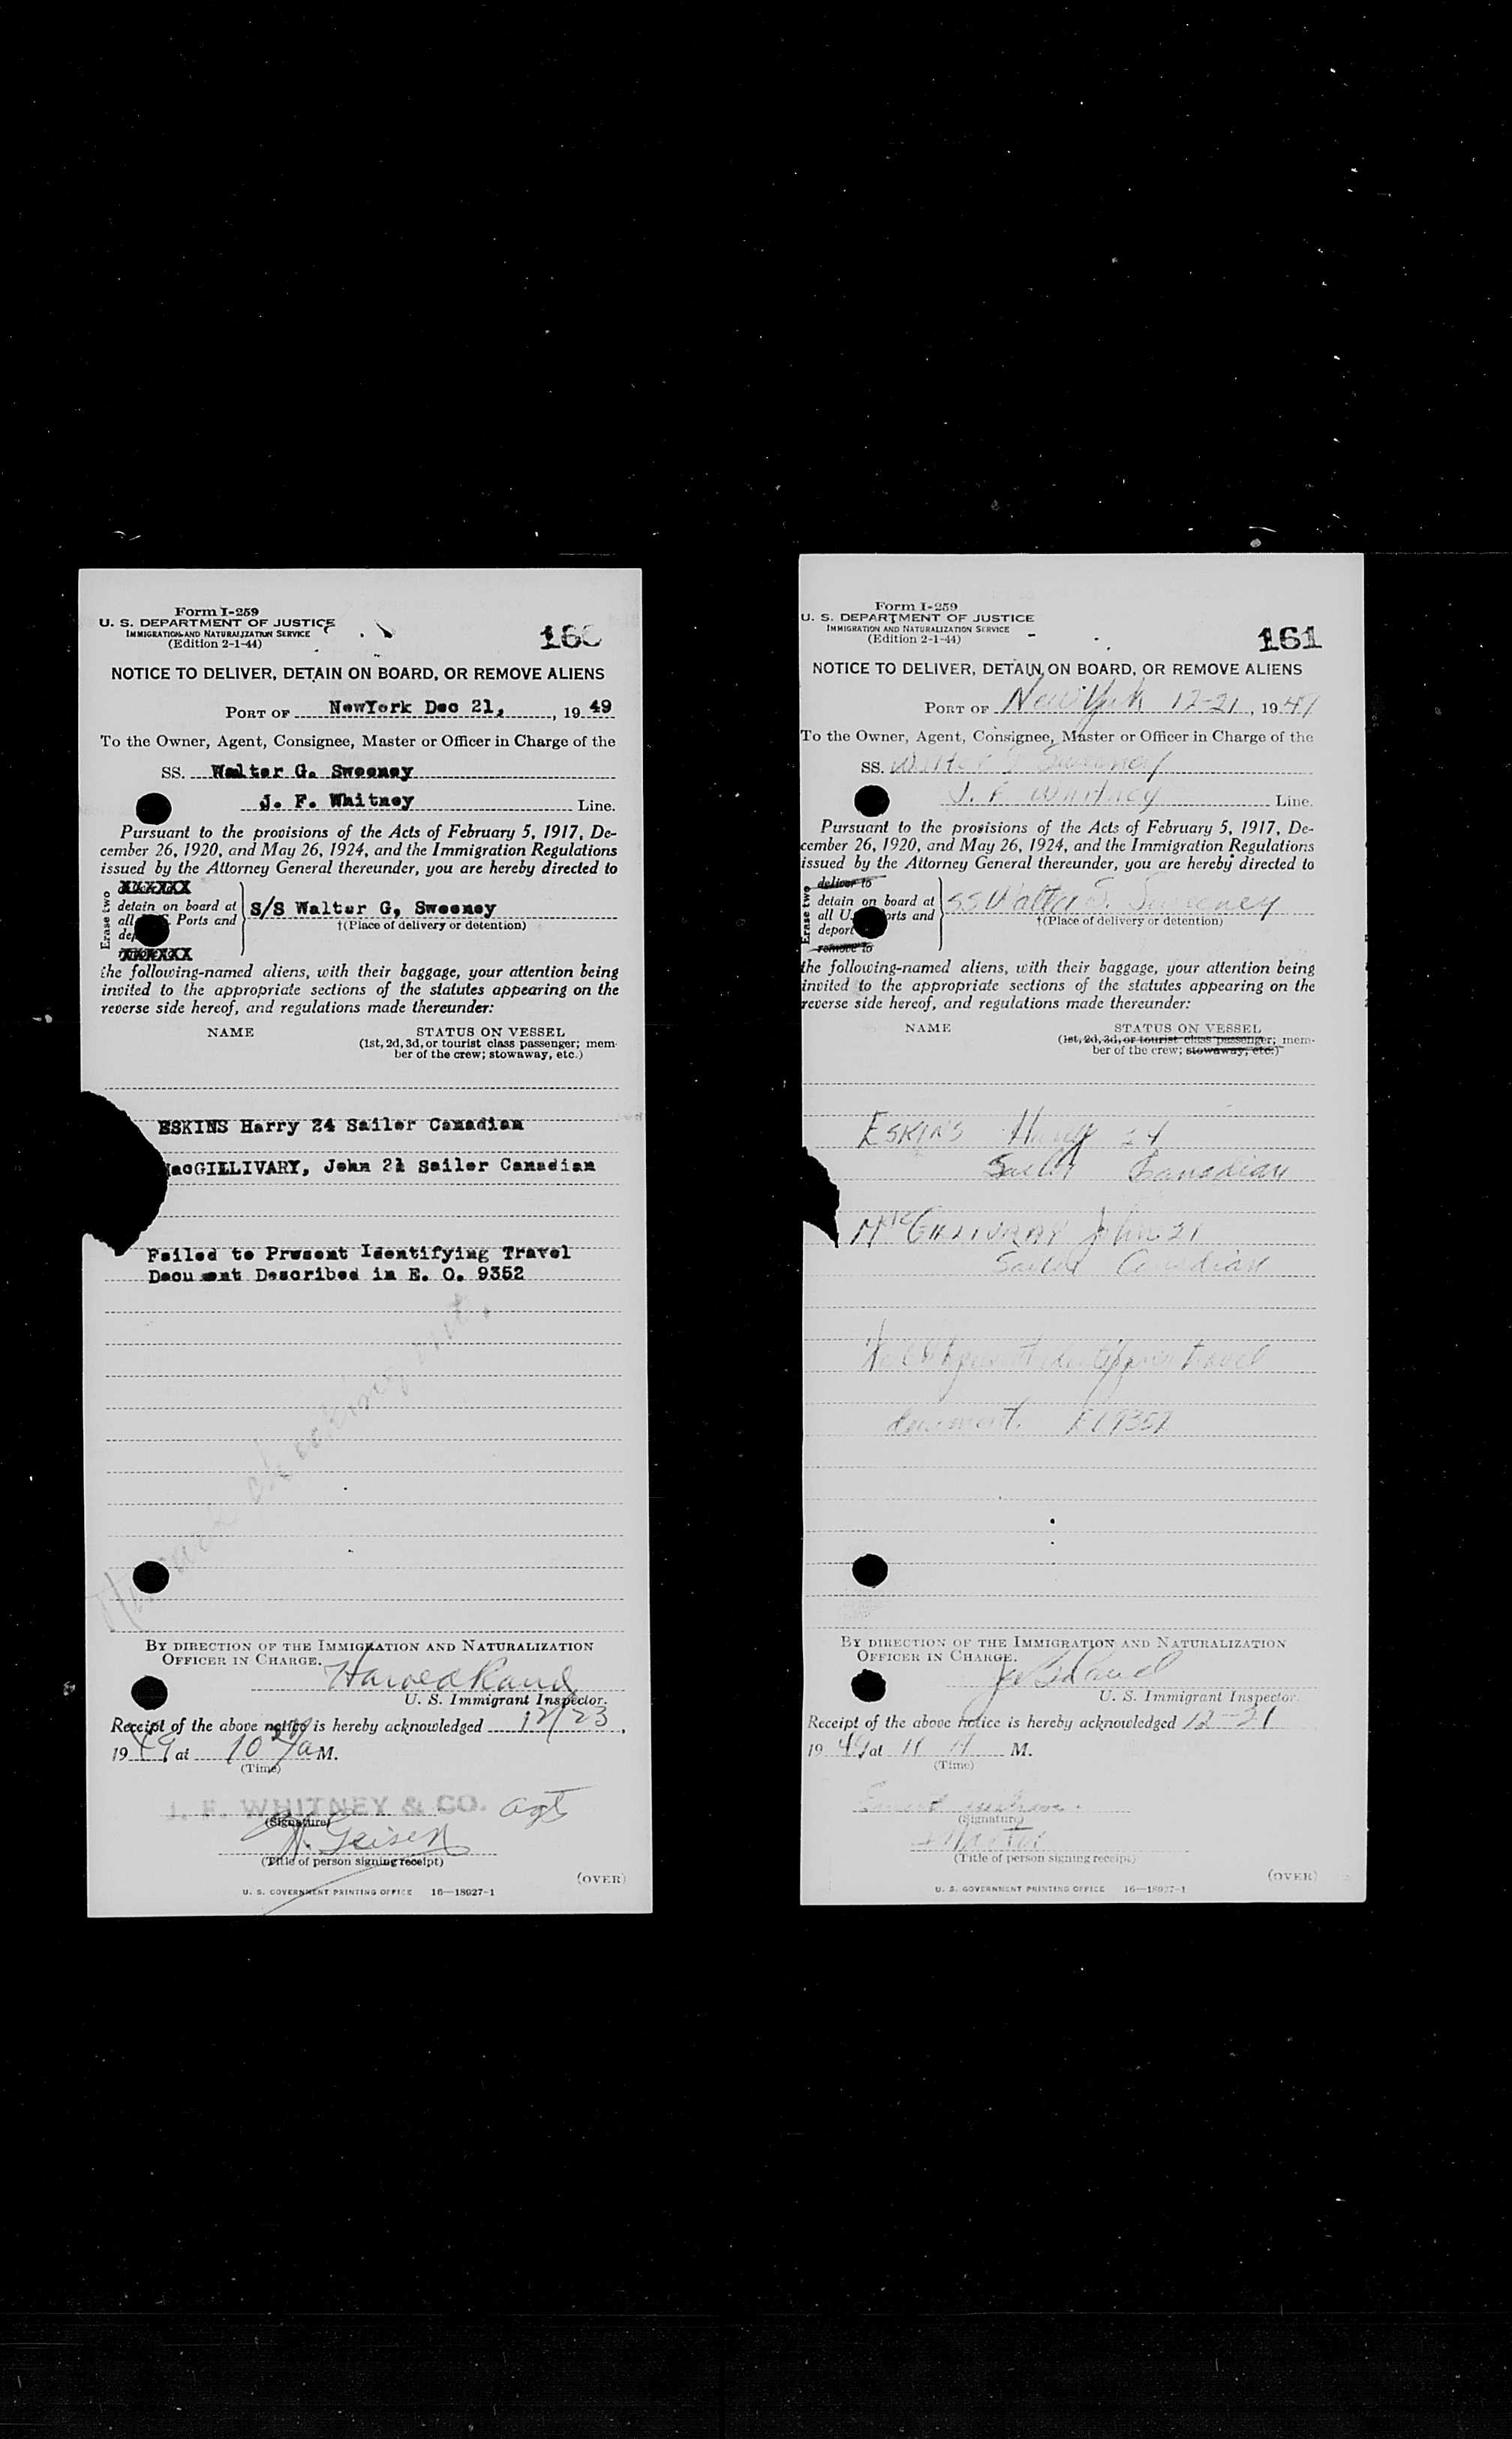 Form I-259
U. S. DEPARTMENT OF JUSTICE
IMMIGRATION AND NATURALIZATION SERVICE
(Edition 2-1-44)
NOTICE TO DELIVER, DETAIN ON BOARD, OR REMOVE ALIENS
PORT OF NewYork Dec 21, , 19 49
To the Owner, Agent, Consignee, Master or Officer in Charge of the
SS. Walter G. Sweeney
J. F. Whitney Line.
Pursuant to the provisions of the Acts of February 5, 1917, De-
cember 26, 1920, and May 26, 1924, and the Immigration Regulations
issued by the Attorney General thereunder, you are hereby directed to
Erase two
XXXXXX
detain on board at
all Ports and
S/S Walter G, Sweeney
†(Place of delivery or detention)
XXXXXX
the following-named aliens, with their baggage, your attention being
invited to the appropriate sections of the statutes appearing on the
reverse side hereof, and regulations made thereunder:
NAME STATUS ON VESSEL
(1st, 2d, 3d, or tourist class passenger; mem-
ber of the crew; stowaway, etc.)
ESKINS Harry 24 Sailer Canadian
MacGILLIVARY, John 21 Sailer Canadian
Failed to Present Identifying Travel
Document Described in E. O. 9352
BY DIRECTION OF THE IMMIGRATION AND NATURALIZATION
OFFICER IN CHARGE.
Harold Rand
U. S. Immigrant Inspector.
Receipt of the above notice is hereby acknowledged 12/23 ,
19 49 at 10 a M.
(Time)
J. F. WHITNEY & CO. agt
(Signature)
Geisen
(Title of person signing receipt)
(OVER)
U. S. GOVERNMENT PRINTING OFFICE 16—18027-1
Form I-259
U. S. DEPARTMENT OF JUSTICE
IMMIGRATION AND NATURALIZATION SERVICE
(Edition 2-1-44)
161
NOTICE TO DELIVER, DETAIN ON BOARD, OR REMOVE ALIENS
PORT OF New York 12-21 , 19 49
To the Owner, Agent, Consignee, Master or Officer in Charge of the
SS. Walter G Sweeney
J. F Whitney Line.
Pursuant to the provisions of the Acts of February 5, 1917, De-
cember 26, 1920, and May 26, 1924, and the Immigration Regulations
issued by the Attorney General thereunder, you are hereby directed to
Erase two
deliver to
detain on board at
all U. Ports and
deport
SS Walter G. Sweeney
†(Place of delivery or detention)
remove to
the following-named aliens, with their baggage, your attention being
invited to the appropriate sections of the statutes appearing on the
reverse side hereof, and regulations made thereunder:
NAME STATUS ON VESSEL
(1st, 2d, 3d, or tourist class passenger; mem-
ber of the crew; stowaway, etc.)
ESKINS Harry 24
Sailor Canadian
MacGILLIVRAY John 21
Sailor Canadian
travel
document.
BY DIRECTION OF THE IMMIGRATION AND NATURALIZATION
OFFICER IN CHARGE.
U. S. Immigrant Inspector.
Receipt of the above notice is hereby acknowledged 12-21
19 49 at 11 A M.
(Time)
(Signature)
Master
(Title of person signing receipt)
(OVER)
U. S. GOVERNMENT PRINTING OFFICE 16—18027-1